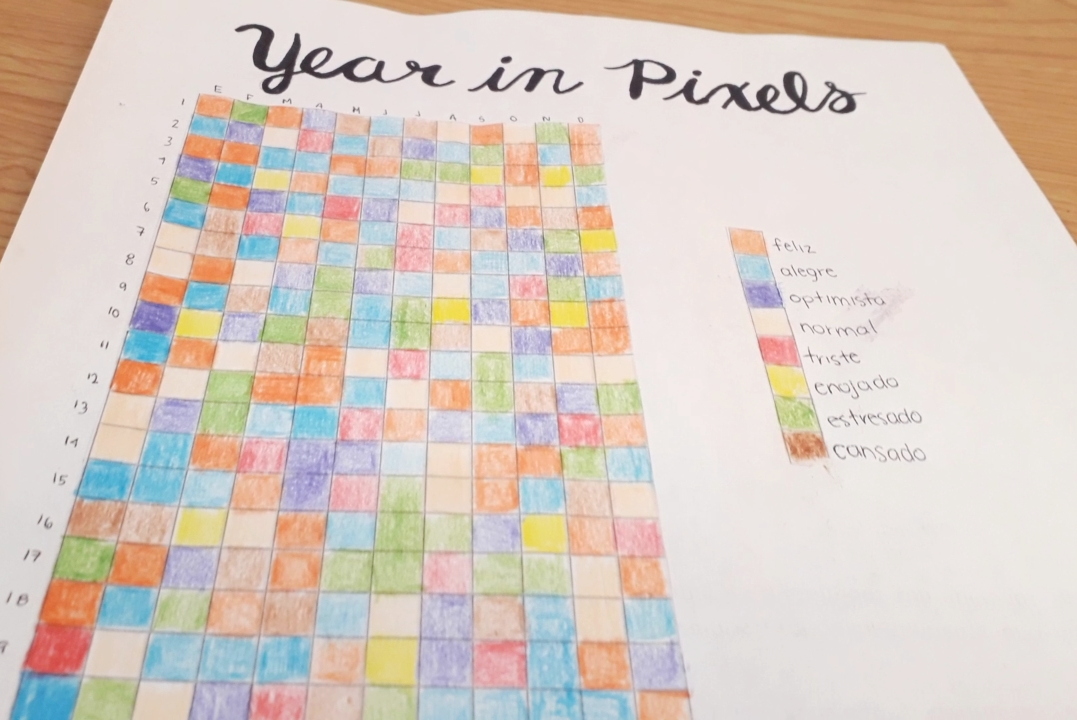 Year in Pixels
E F M A M J J A S O N D
1
2
3
4
5
6
7
8
9
10
11
12
13
14
15
16
17
18
feliz
alegre
optimista
normal
triste
enojado
estresado
cansado